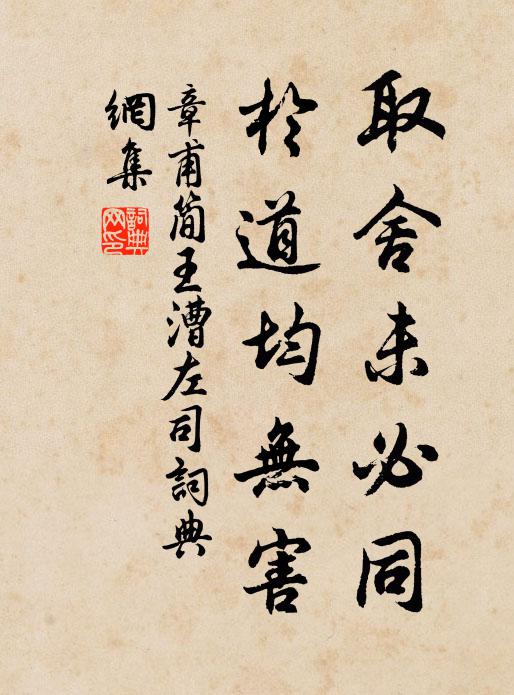 取舍未必同
於道均無害
章甫简王漕左司詞典
網集
詞典
网印